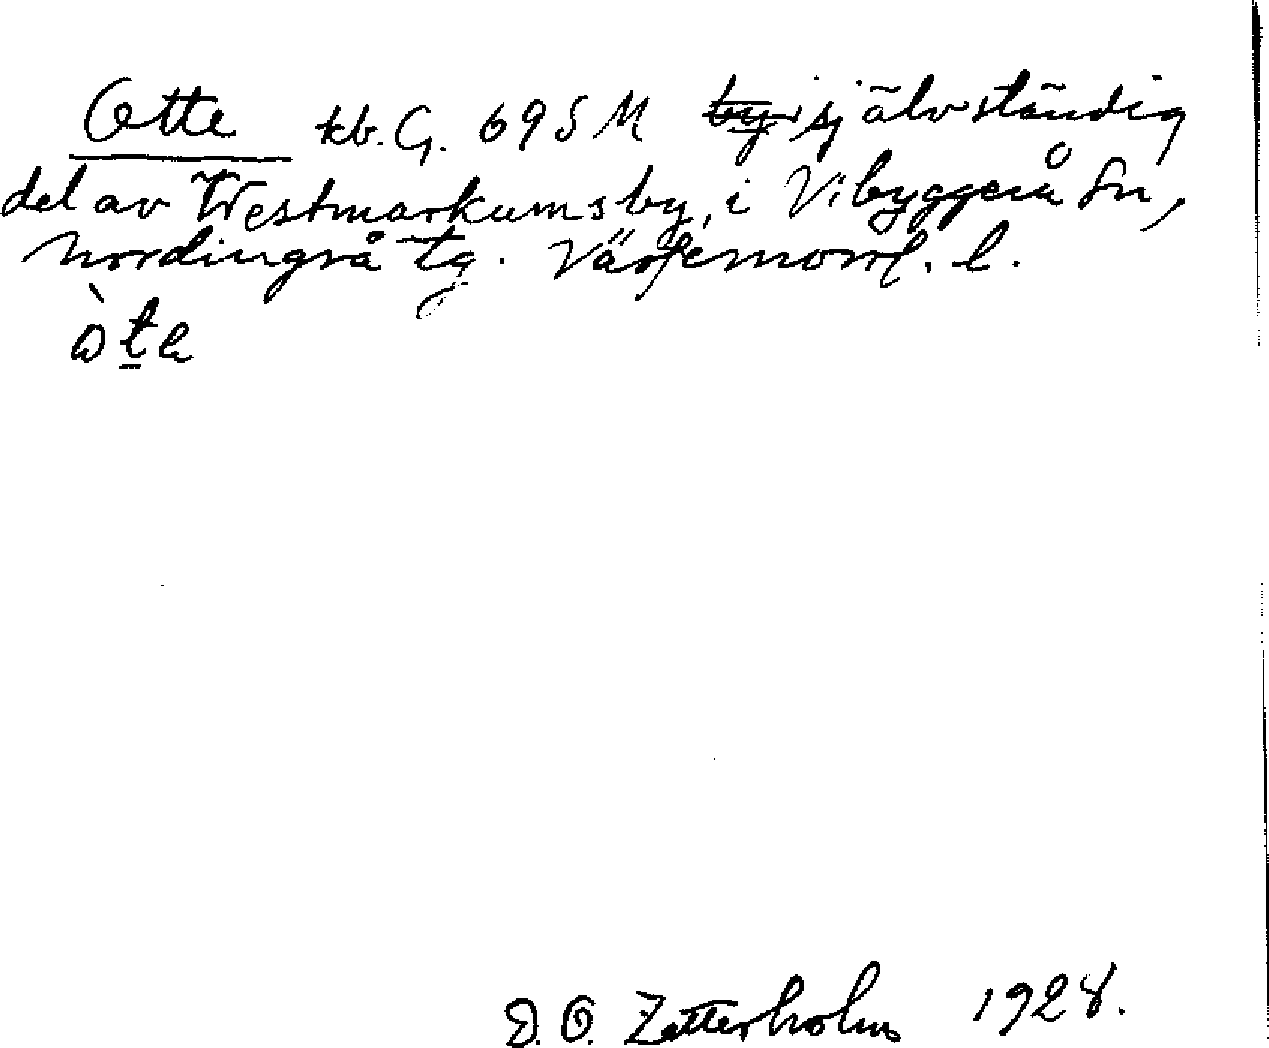 Otte kb. G. 69 S M by självständig
del av Westmarkumsby, i Vibyggerå sn,
Nordingrå tg. Västernorrl. l.
òta
D. O. Zetterholm 1928.